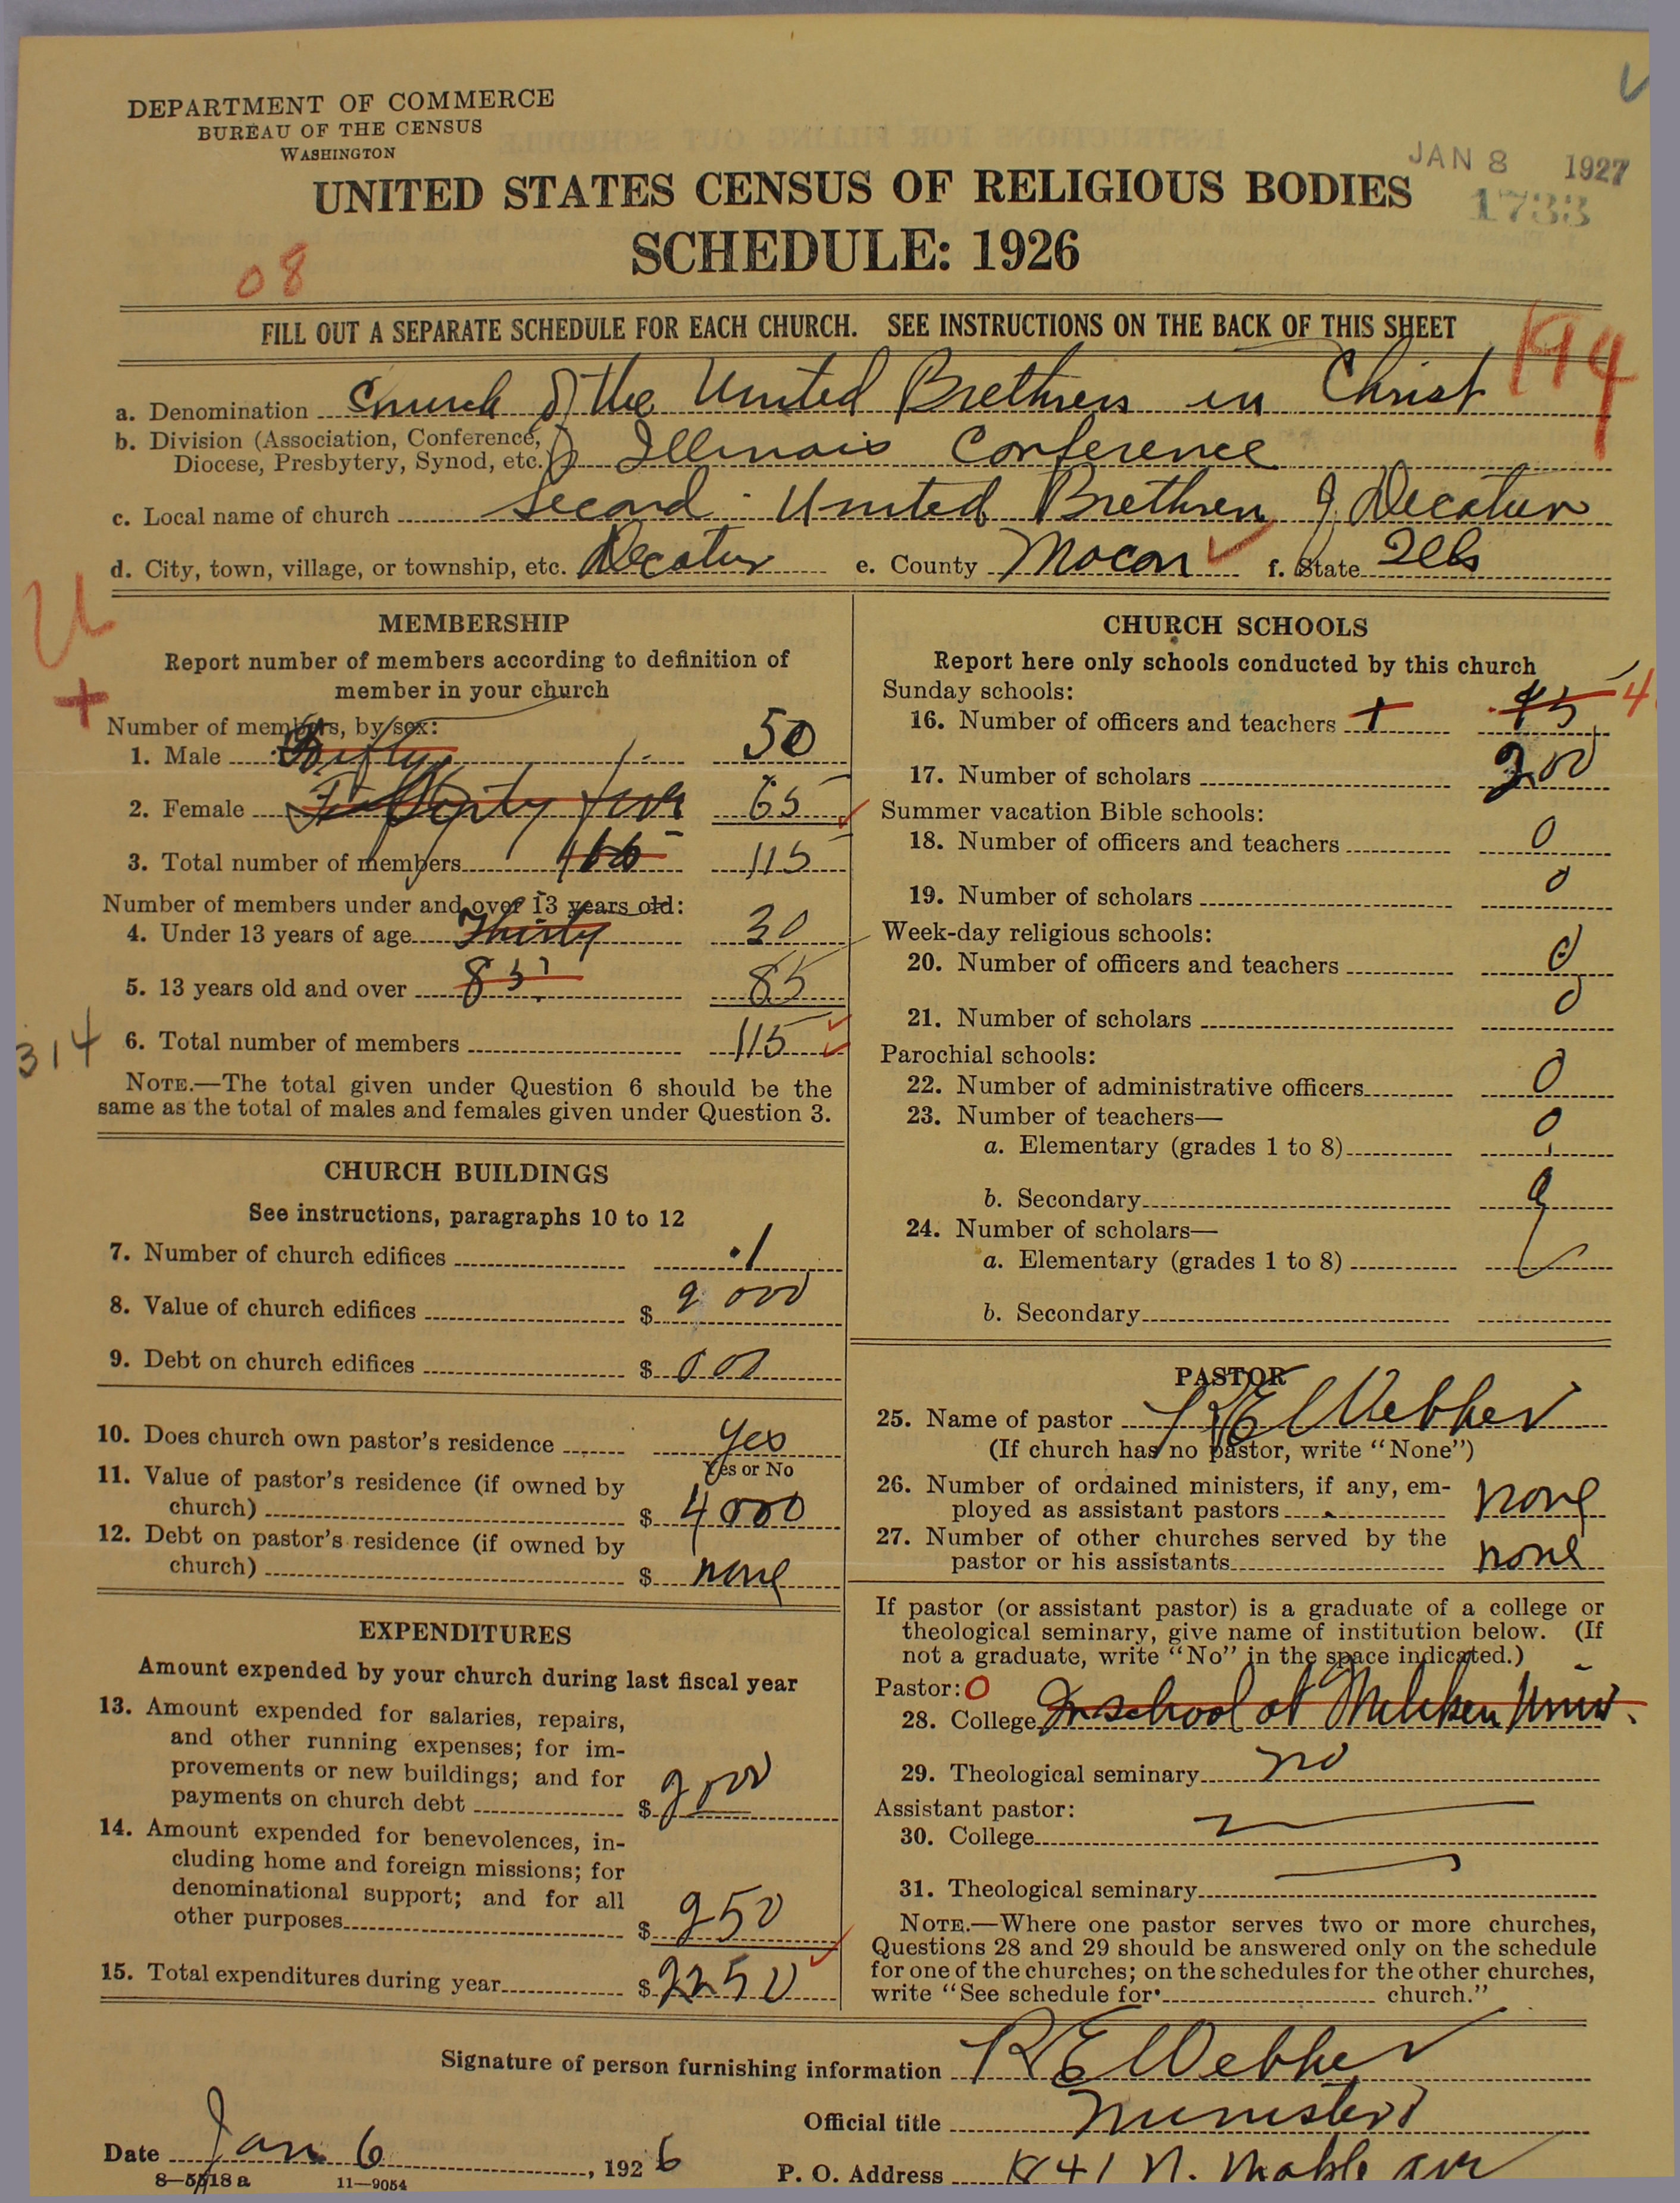 DEPARTMENT OF COMMERCE
BUREAU OF THE CENSUS
WASHINGTON
JAN 8 1927
1733
UNITED STATES CENSUS OF RELIGIOUS BODIES
SCHEDULE: 1926
08
FILL OUT A SEPARATE SCHEDULE FOR EACH CHURCH. SEE INSTRUCTIONS ON THE BACK OF THIS SHEET
a. Denomination Church of the United Brethren in Christ
b. Division (Association, Conference, Diocese, Presbytery, Synod, etc.) Illinois Conference
c. Local name of church Second United Brethren of Decatur
d. City, town, village, or township, etc. Decatur e. County Macon f. State Ills
U
+
314
MEMBERSHIP
Report number of members according to definition of
member in your church
Number of members, by sex:
1. Male Fifty 50
2. Female 65
3. Total number of members 115
Number of members under and over 13 years old:
4. Under 13 years of age Thirty 30
5. 13 years old and over 85 85
6. Total number of members 115
NOTE.—The total given under Question 6 should be the
same as the total of males and females given under Question 3.
CHURCH BUILDINGS
See instructions, paragraphs 10 to 12
7. Number of church edifices 1
8. Value of church edifices $ 9000
9. Debt on church edifices $ 000
10. Does church own pastor's residence yes
Yes or No
11. Value of pastor's residence (if owned by
church) $ 4000
12. Debt on pastor's residence (if owned by
church) $ none
EXPENDITURES
Amount expended by your church during last fiscal year
13. Amount expended for salaries, repairs,
and other running expenses; for im-
provements or new buildings; and for
payments on church debt $ 2000
14. Amount expended for benevolences, in-
cluding home and foreign missions; for
denominational support; and for all
other purposes $ 250
15. Total expenditures during year $ 2250
CHURCH SCHOOLS
Report here only schools conducted by this church
Sunday schools:
16. Number of officers and teachers
17. Number of scholars 200
Summer vacation Bible schools:
18. Number of officers and teachers 0
19. Number of scholars 0
Week-day religious schools:
20. Number of officers and teachers 0
21. Number of scholars 0
Parochial schools:
22. Number of administrative officers 0
23. Number of teachers—
a. Elementary (grades 1 to 8) 0
b. Secondary
24. Number of scholars—
a. Elementary (grades 1 to 8)
b. Secondary
PASTOR
25. Name of pastor R E Webber
(If church has no pastor, write "None")
26. Number of ordained ministers, if any, em-
ployed as assistant pastors none
27. Number of other churches served by the
pastor or his assistants none
If pastor (or assistant pastor) is a graduate of a college or
theological seminary, give name of institution below. (If
not a graduate, write "No" in the space indicated.)
Pastor: 0
28. College In school at Miliken Univ.
29. Theological seminary no
Assistant pastor:
30. College
31. Theological seminary
NOTE.—Where one pastor serves two or more churches,
Questions 28 and 29 should be answered only on the schedule
for one of the churches; on the schedules for the other churches,
write "See schedule for church."
Signature of person furnishing information R E Webber
Official title Minister
Date Jan 6, 1926 P. O. Address 1841 N. Maple ave
8—5518 a 11—9054